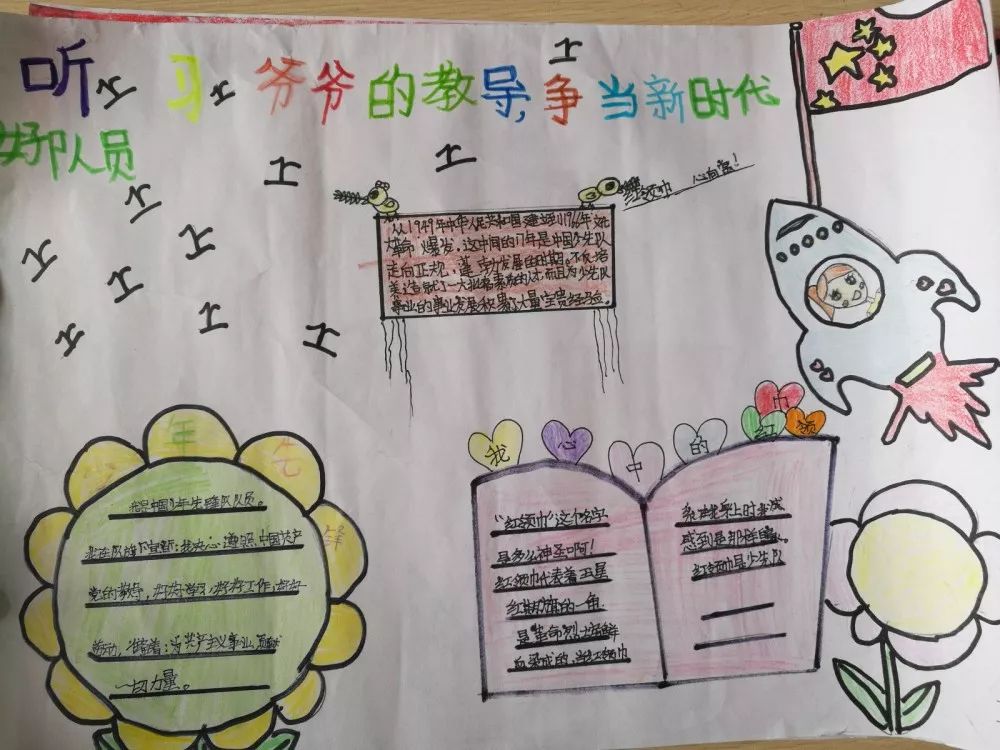 听习爷爷的教导,争当新时代
好队员
红领巾 心向党!
从1949年中华人民共和国建立到1966年文化
大革命爆发,这中间的17年是中国少先队
走向正规,蓬勃发展的时期。不仅培
养造就了一大批高素质的人才而且为少先队
事业的事业发展积累了大量宝贵经验。
少年先锋
我是中国少年先锋队队员。
我在队旗下宣誓:我决心遵照中国共产
党的教导,好好学习,好好工作,好好
劳动,准备着:为共产主义事业,贡献
一切力量。
我心中的红领巾
"红领巾"这个名字
是多么神圣啊!
红领巾代表着五星
红旗的一角
是革命烈士鲜
血染成的,当红领巾
系在脖子上时我就
感到是那样
红领巾是少先队